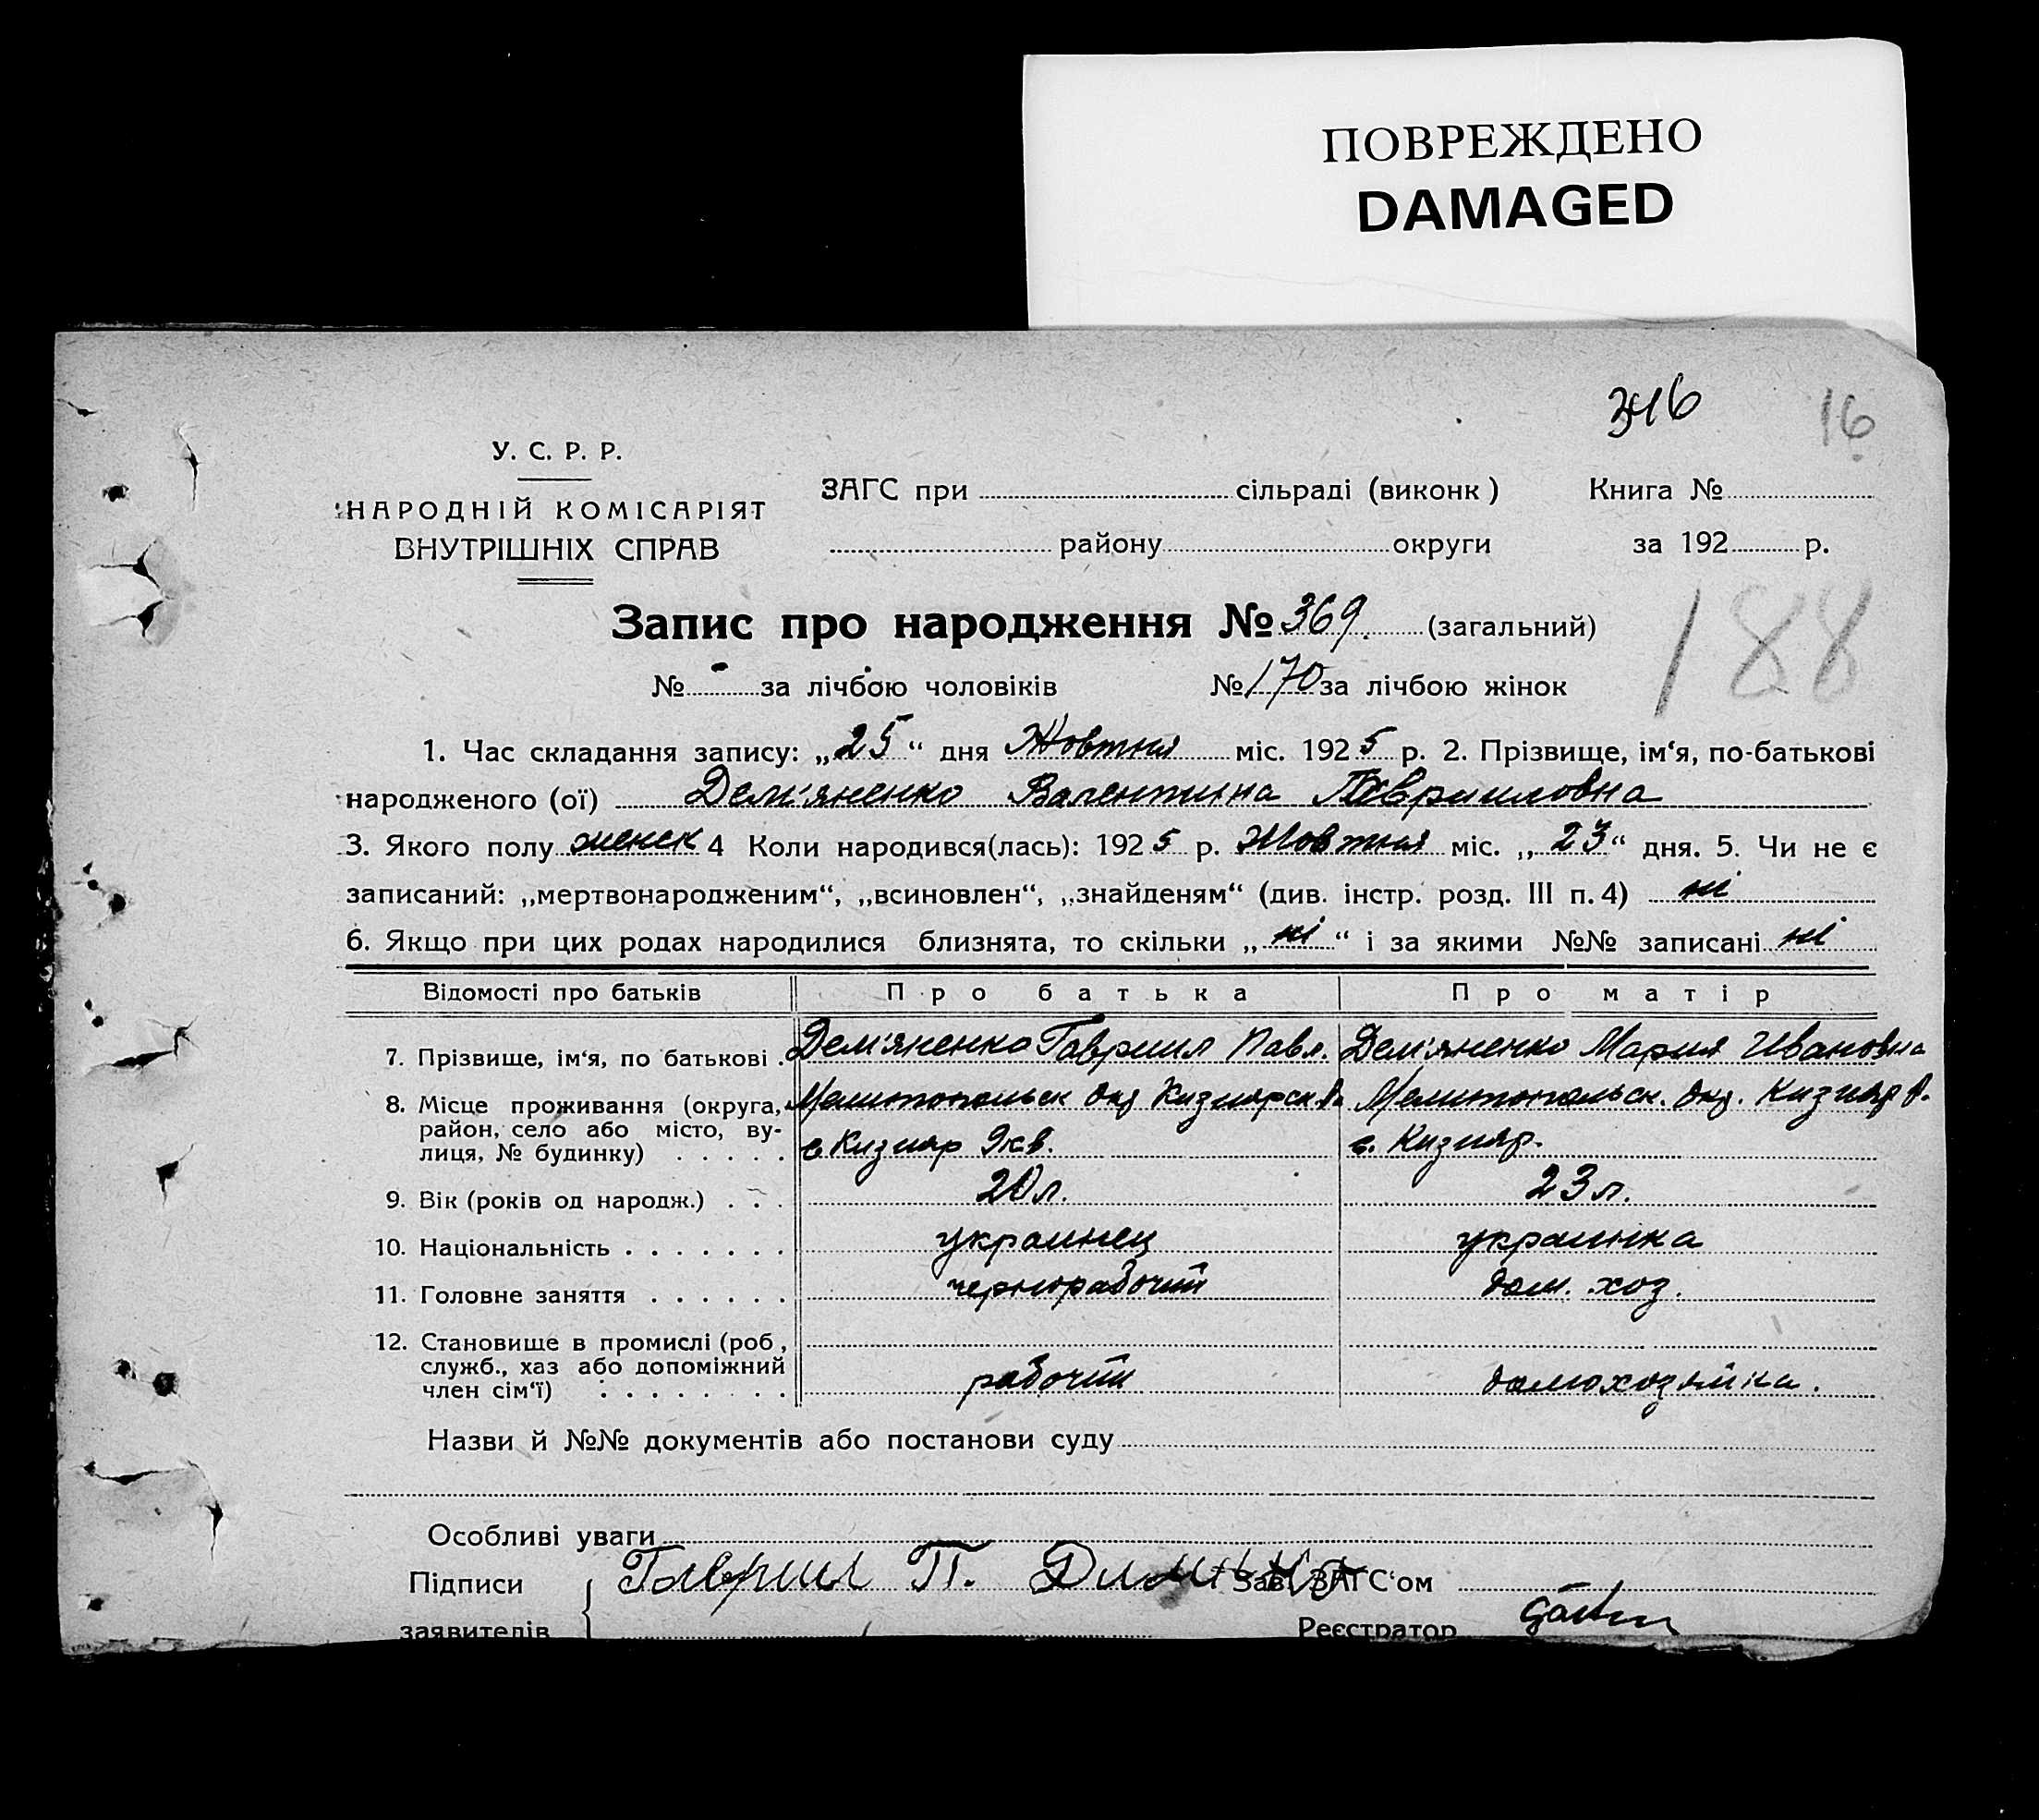 ПОВРЕЖДЕНО
DAMAGED
16
У. С. Р. Р.
НАРОДНІЙ КОМІСАРІЯТ
ВНУТРІШНІХ СПРАВ
ЗАГС при сільраді (виконк) Книга №
району округи за 192 р.
188
Запис про народження № 369. (загальний)
№ - за лічбою чоловіків № 170 за лічбою жінок
1. Час складання запису: „25“ дня Жовтня міс. 1925 р. 2. Прізвище, ім‘я, по-батькові
народженого (ої) Дем'яненко Валентина Гавриловна
3. Якого полу женск 4 Коли народився(лась): 1925 р. Жовтня міс. „23“ дня. 5. Чи не є
записаний: „мертвонародженим“, „всиновлен“, „знайденям“ (див. інстр. розд. III п. 4) ні
6. Якщо при цих родах народилися близнята, то скільки „ні“ і за якими №№ записані ні
Відомості про батьків Про батька Про матір
7. Прізвище, ім‘я, по батькові . Дем'яненко Гавриил Павл. Дем'яненко Мария Ивановна
8. Місце проживання (округа, Мелитопольск Окр Кизиярск. Р. Мелитопольск. Окр. Кизияр Р.
район, село або місто, вулиця, № будинку) . . . . . с Кизияр с. Кизияр.
9. Вік (років од народж.) . . . 20 л. 23 л.
10. Національність . . . . . . . украинец украинка
11. Головне заняття . . . . . . чернорабочий дом. хоз.
12. Становище в промислі (роб,
служб., хаз або допоміжний
член сім‘ї) . . . . . . . . рабочий домохозяйка.
Назви й №№ документів або постанови суду
Особливі уваги
Підписи Гавриил П. Зав. ЗАГС‘ом
заявителів Реєстратор